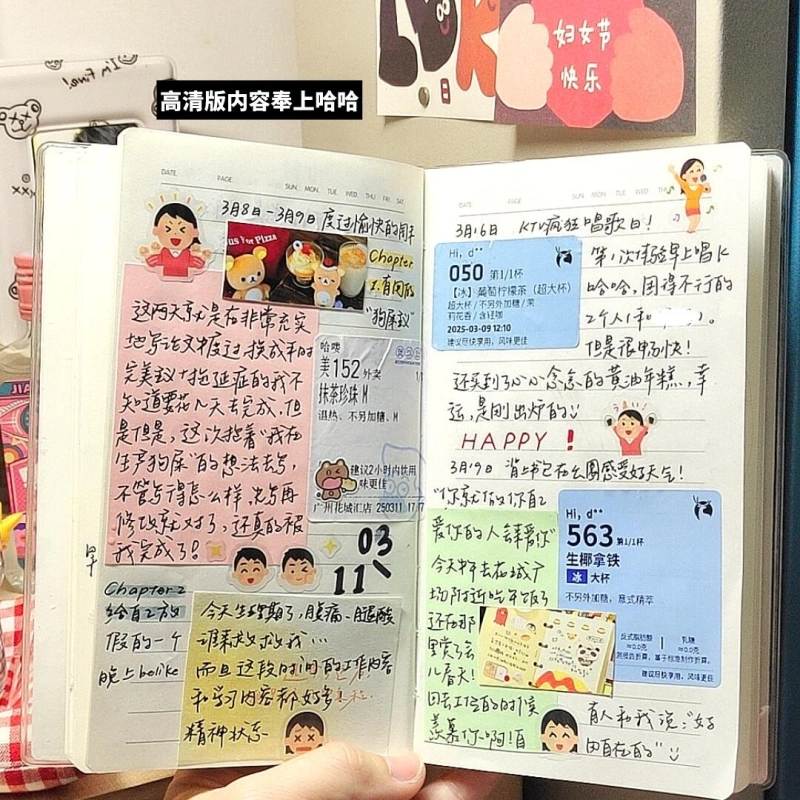 I'm fine!
妇女节
快乐
日
高清版内容奉上哈哈
DATE. PAGE. SUN. MON. TUE. WED. THU. FRI. SAT.
3月8日-3月9日 度过愉快的周末
for Pizza
Chapter
1.有间的
"狗屎致"
这两天就是在非常充实
地写论文中度过,换成平时
完美主义+拖延症的我不
知道要花几天去完成,但
是但是,这次抱着"我在
生产狗屎"的想法去写,
不管写得怎么样,先写再
修改就对了,还真的被
我完成了!
哈喽
美152外卖
抹茶珍珠 M
温热、不另加糖、M
建议2小时内饮用
味更佳
广州花城汇店 250311 17:17
03
11
早
Chapter 2
给自己放
假的一个
晚上belike
今天生理期了,腹痛、腿酸
谁来救救我…
而且这段时间的工作内容
和学习内容都好多
精神状态
DATE. PAGE. SUN. MON. TUE. WED. THU
3月16日 KTV疯狂唱歌日!
Hi, d**
050 第1/1杯
【冰】葡萄柠檬茶(超大杯)
超大杯/不另外加糖/茉
莉花香/含轻咖
2025-03-09 12:10
建议尽快享用,风味更佳
第1次体验早上唱K
哈哈,困得不行的
2个人(和 )。
但是很畅快!
还买到了心心念念的黄油年糕,幸
运,是刚出炉的
うまい!
HAPPY!
3月19日 背上书包在公园感受好天气!
"你就做你自己
爱你的人会来爱你"
今天中午去花城广
场附近吃午饭了
还在那
里赏了会
儿春天!
回去工位的时候
羡慕你啊!自
Hi, d**
563 第1/1杯
生椰拿铁
冰 大杯
不另外加糖,意式精萃
反式脂肪酸 乳糖
≈0.0克 ≈0.0克
建议尽快享用,风味更佳
有人和我说:"好
自由自在的"